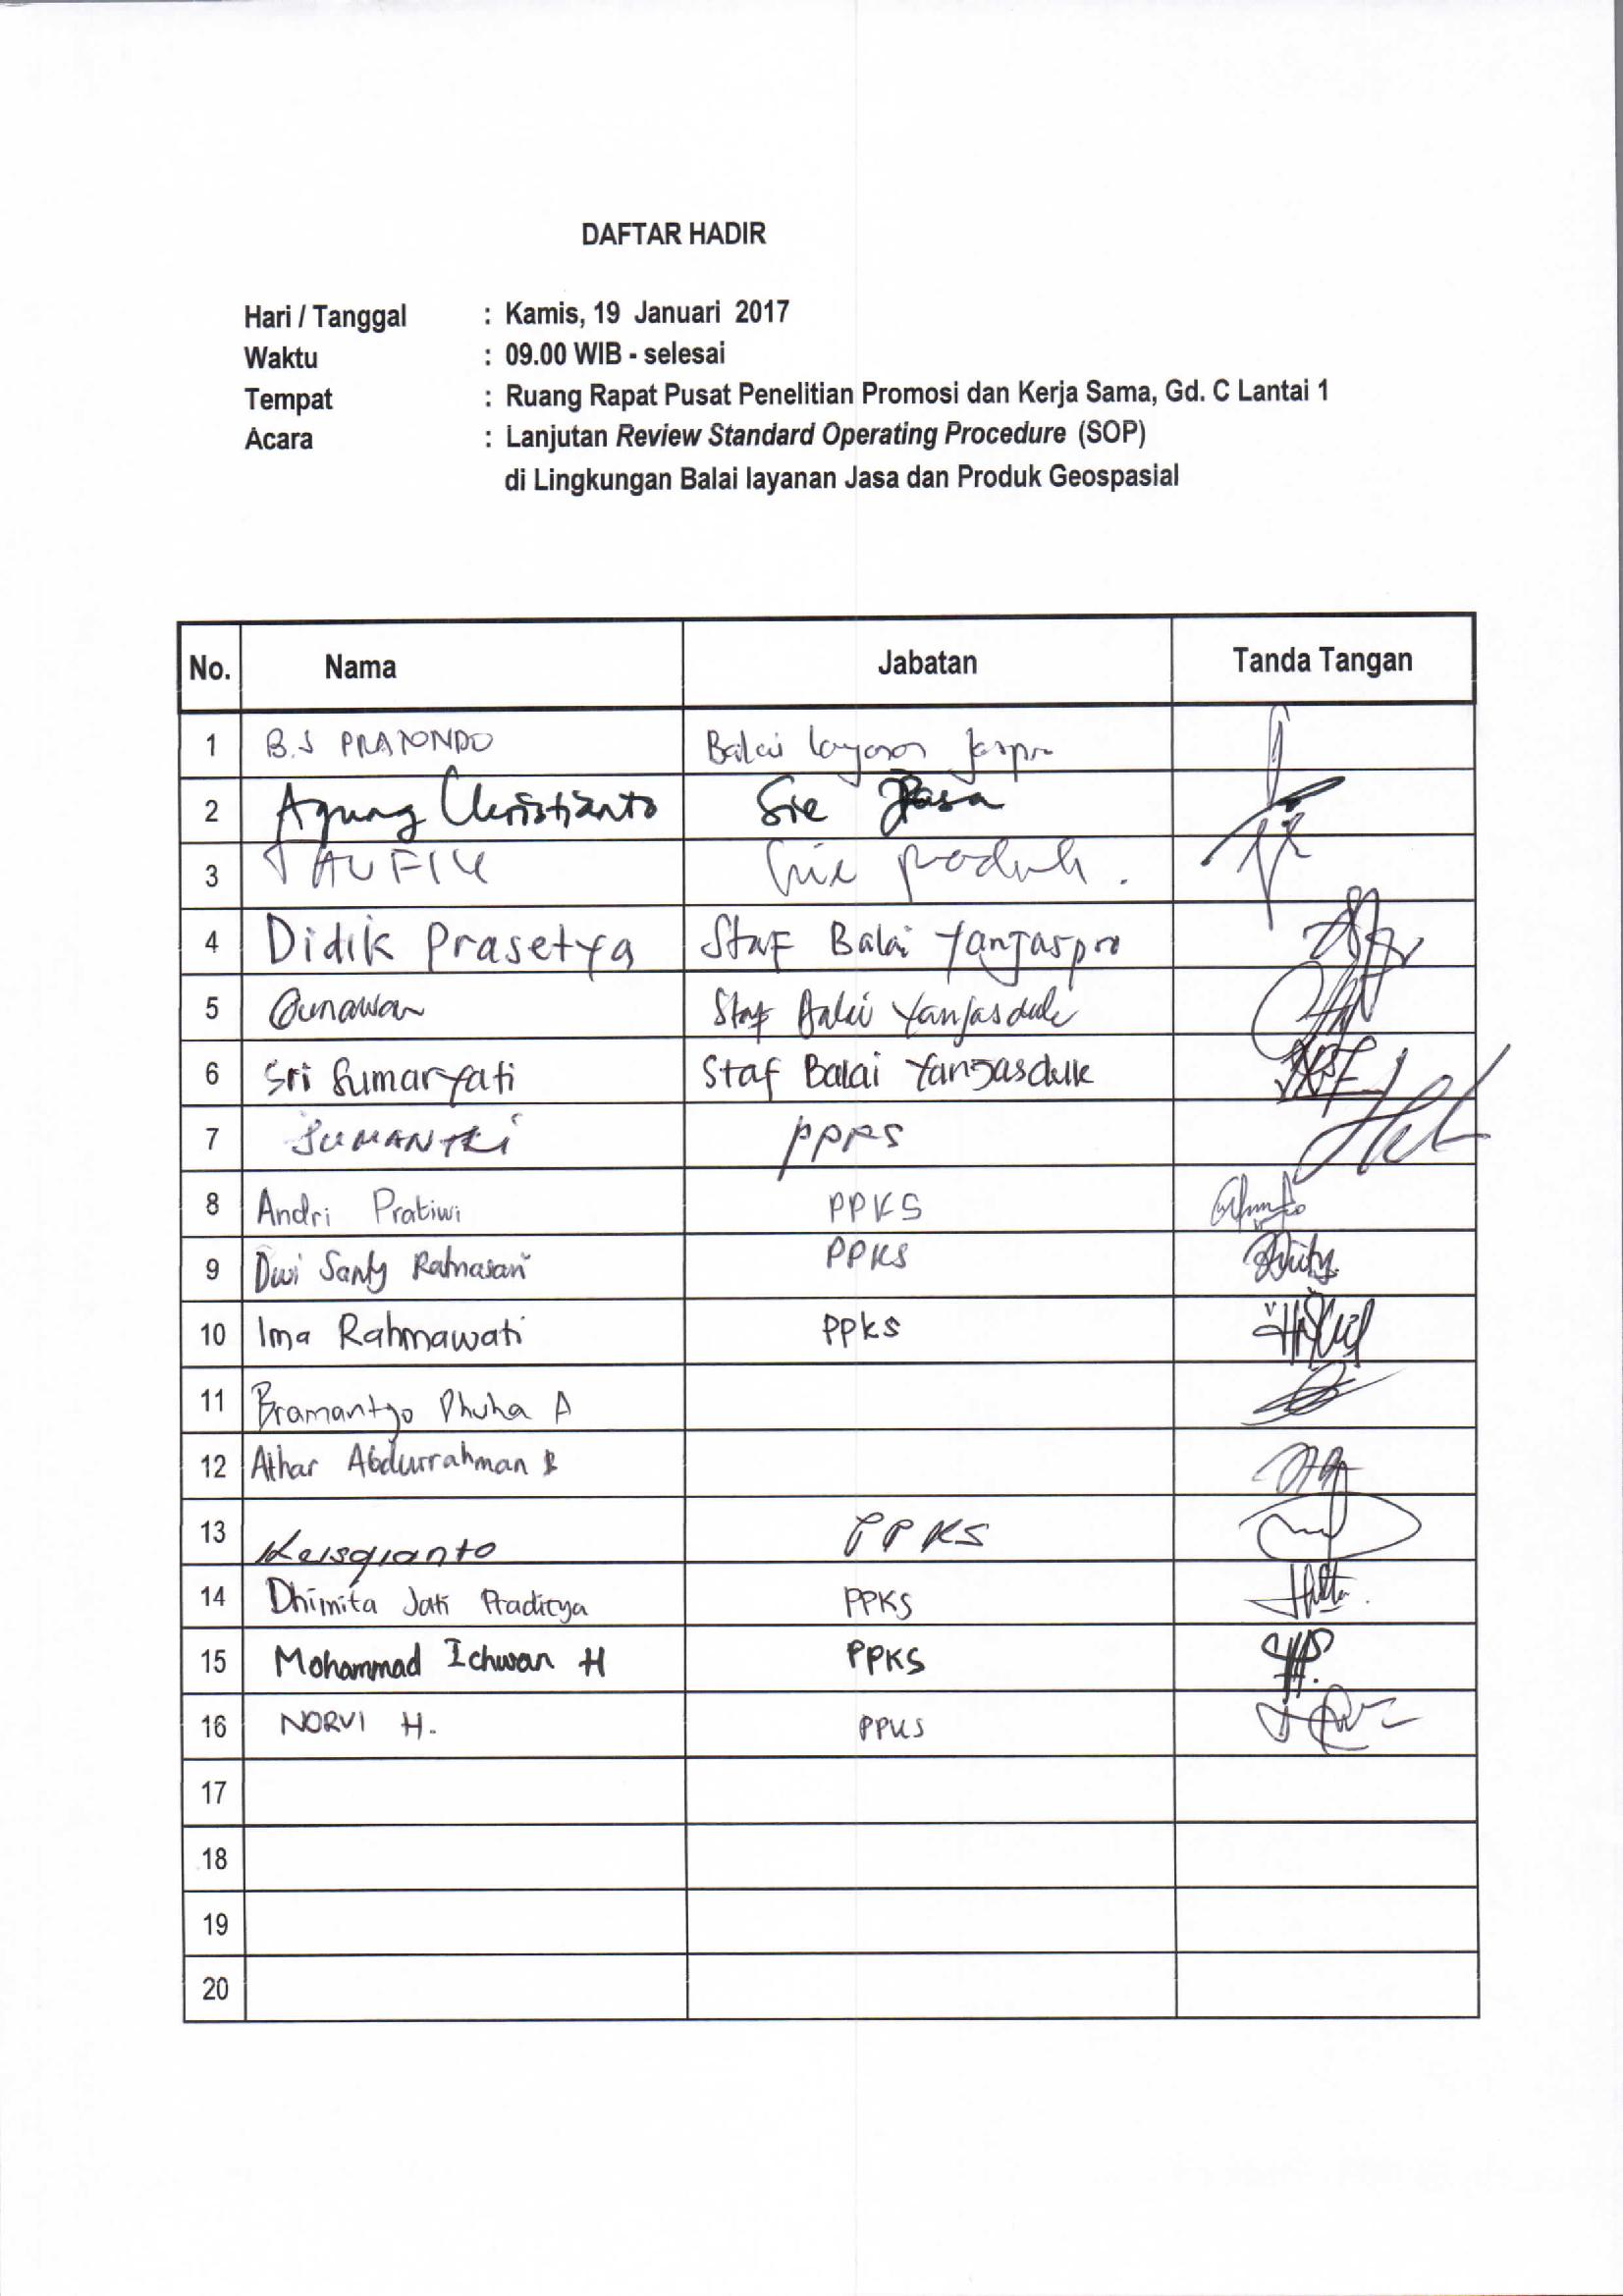 DAFTAR HADIR
Hari / Tanggal : Kamis, 19 Januari 2017
Waktu : 09.00 WIB - selesai
Tempat : Ruang Rapat Pusat Penelitian Promosi dan Kerja Sama, Gd. C Lantai 1
Acara : Lanjutan Review Standard Operating Procedure (SOP)
di Lingkungan Balai layanan Jasa dan Produk Geospasial
No. Nama Jabatan Tanda Tangan
1 B.S PRATONDO Balai layanan Jaspro
2 Agung Christianto Sie Jasa
3 TAUFIK Sie produk.
4 Didik Prasetya Staf Balai Yanjaspro
5 Gunawan Staf Balai Yanjasduk
6 Sri Sumaryati Staf Balai Yanjasduk
7 SUMANTRI PPKS
8 Andri Pratiwi PPKS
9 Dwi Santy Ratnasari PPKS
10 Ima Rahmawati PPKS
11 Bramantyo Dhuha A
12 Athar Abdurrahman
13 PPKS
14 Dhimita Jati Praditya PPKS
15 Mohammad Ichwan H PPKS
16 NORVI H. PPKS
17
18
19
20